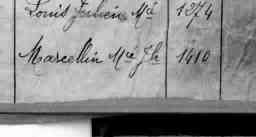 Louis Julien Mie 1274
Marcellin Mie Jh 1410